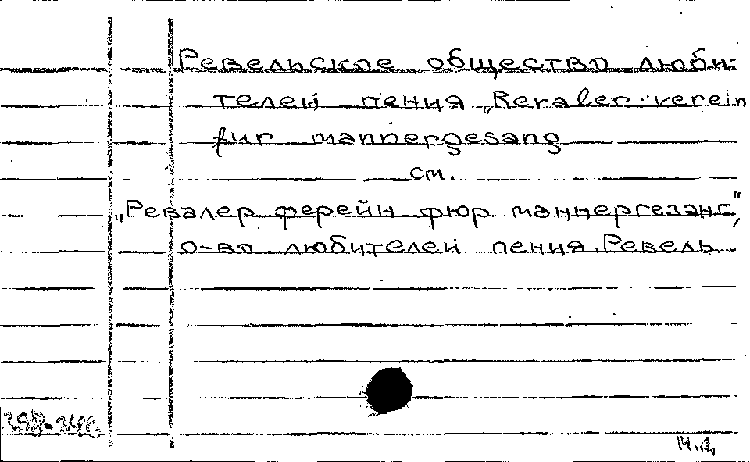 Ревельское общество люби-
телей пения „Revaler verein
für männergesang
см.
„Ревалер ферейн фюр маннергезанг",
о-во любителей пения. Ревель
14.1,